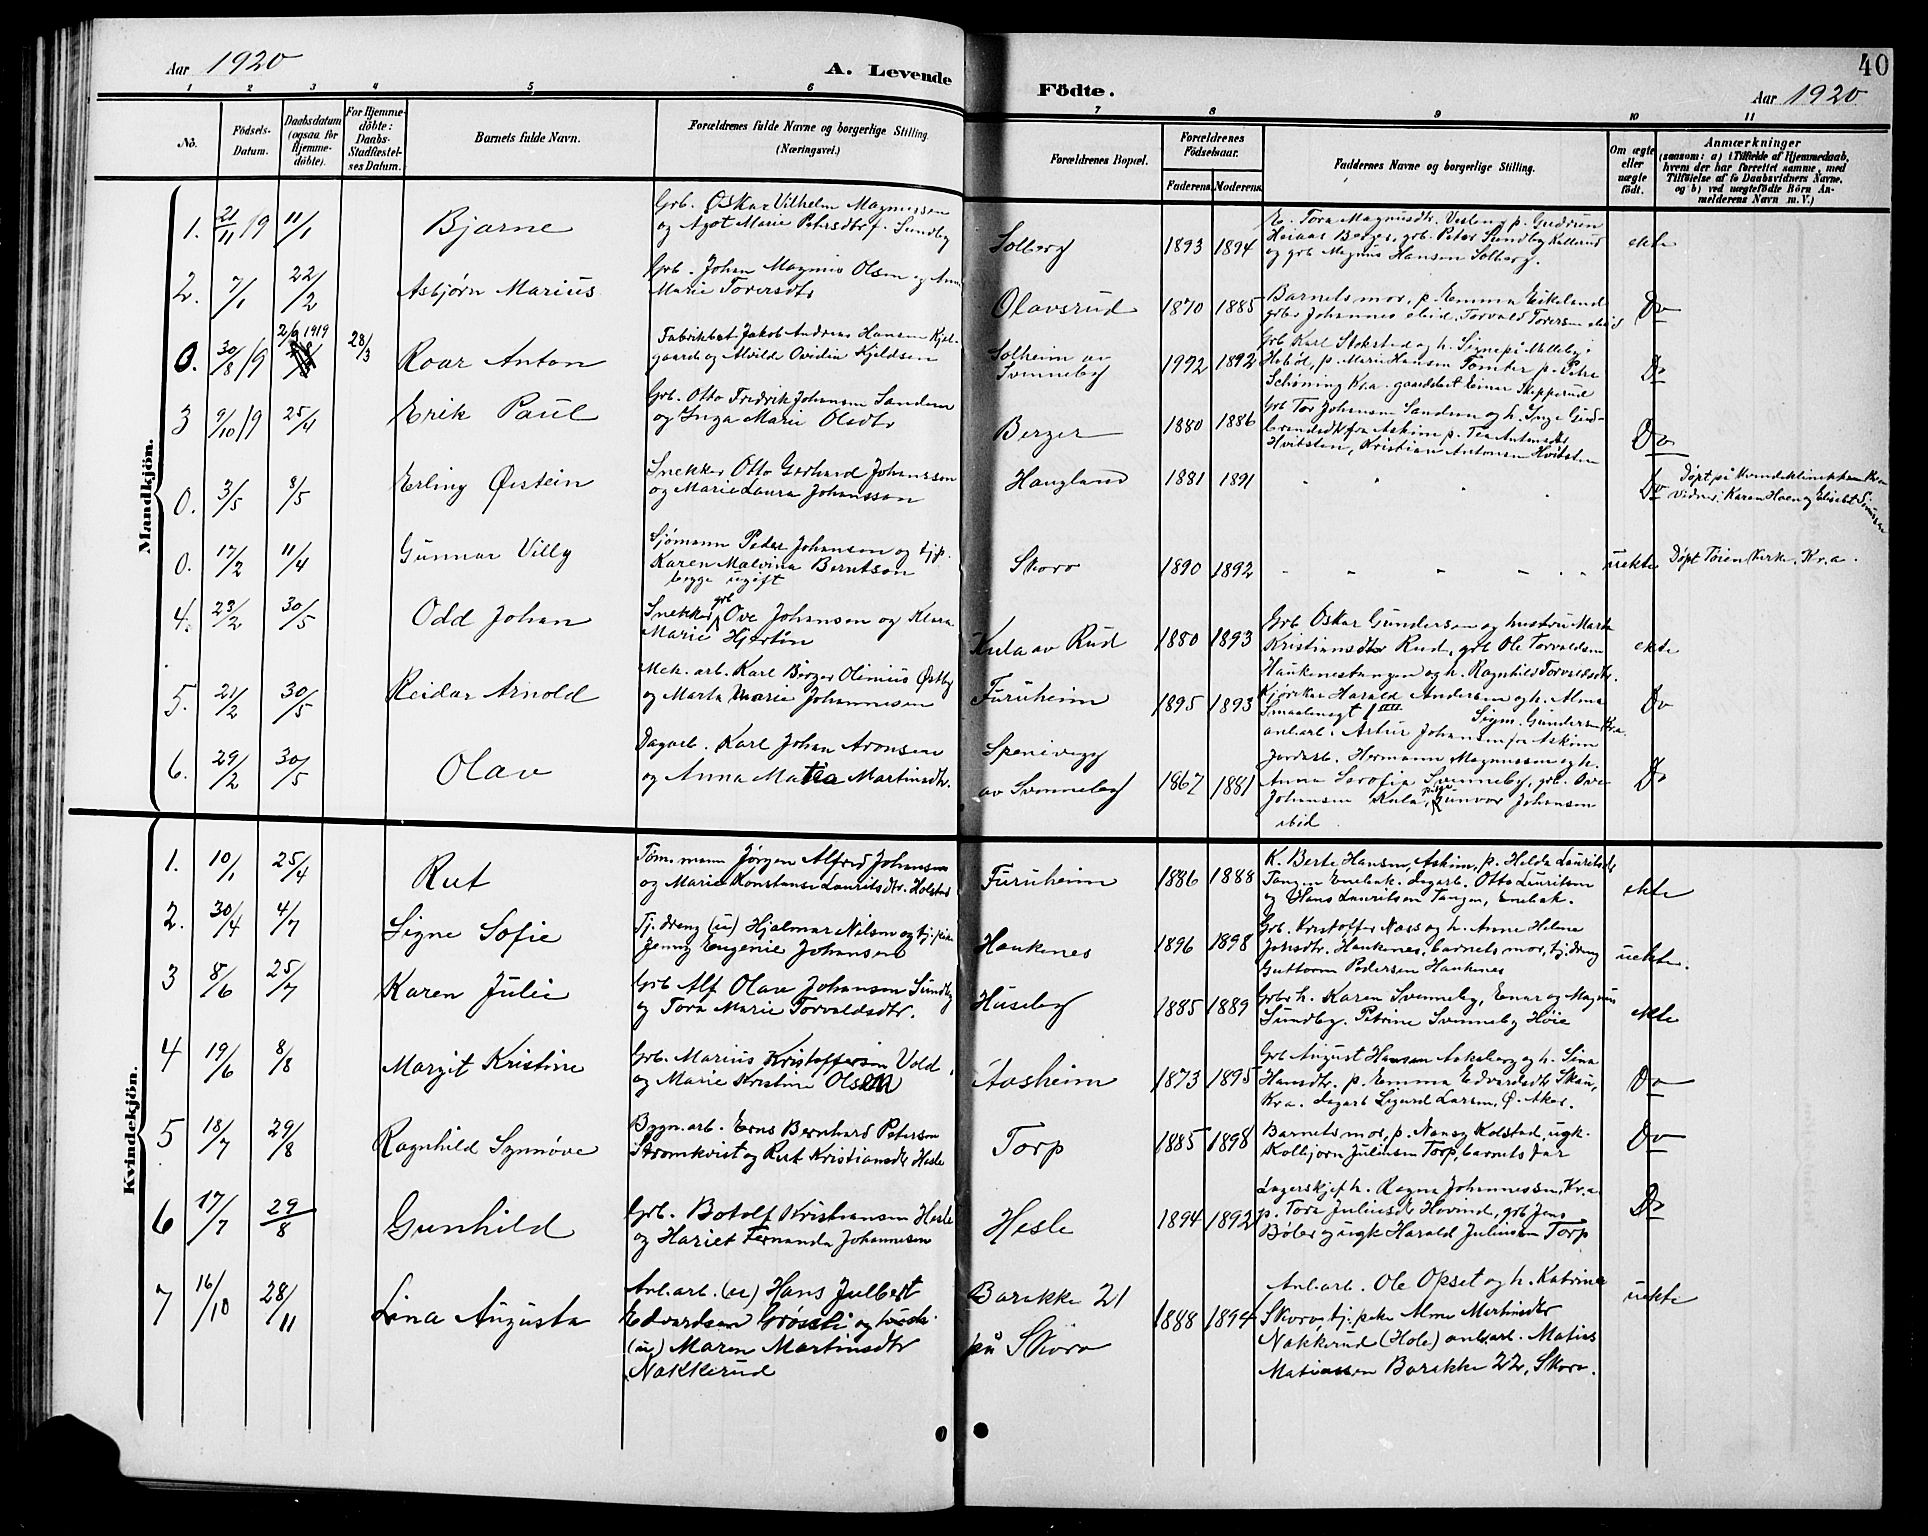 Aar 1920
A. Levende
Födte.
40
Aar 1920
1 2 3 4 5 6 7 8 9 10 11
No.
Födsels-
Datum.
Daabsdatum
(ogsaa for
Hjemme-
döbte).
For Hjemme-
döbte:
Daabs-
Stadfæstel-
ses Datum.
Barnets fulde Navn.
Forældrenes fulde Navne og borgerlige Stilling.
(Næringsvei.)
Forældrenes Bopæl.
Forældrenes
Födselsaar.
Faderens. Moderens.
Faddernes Navne og borgerlige Stilling.
Om ægte
eller
uægte
født.
Anmærkninger
(saasom: a) i Tilfælde af Hjemmedaab,
hvem der har forrettet samme, med
Tilföielse af to Daabsvidners Navne,
og b) ved uægtefödte Börn An-
melderens Navn m. V.)
Mandkjön.
1. 21/11 19 11/1
Bjarne
Grb. Oskar Vilhelm Magnussen
og Agot Marie Petersdtr f. Sundby
Solberg
1893 1894
E. Tora Magnusdtr. Vesteng p. Gudrun
Heiaas Berger, grb. Peter Sundby Kallerud
og grb Magnus Hansen Solberg.
ekte
2. 7/1 22/2
Asbjørn Marius
Grb. Johan Magnus Olsen og Anna
Marie Toversdtr
Olavsrud
1870 1885
Barnets mor, p. Emma Eskeland
grbr Johannes ibid, Torvald Toversen ibid
Do
0. 30/8 19 2/9 1919 28/3
Roar Anton
Fabrikbest. Jakob Andreas Hansen Kjel-
gaard og Alvilde Ovidia Kjeldsen
Solheim av
Svenneby
1992 1892
Grb Karl Stokstad og h. Signe på Melleby i
Hobøl, p. Marie Hansen Tomter p. Petra
Schøning Kr.a. gaardbest Einar Skipperud
Do
3 9/10 19 25/4
Erik Paul
Grb. Otto Fredrik Johansen Sanden
og Inga Marie Olsdtr
Berger
1880 1886
Grb Tor Johansen Sanden og h. Inga Gud-
brandsdtr fra Askim p. Tea Antonsdtr
Hvitsten, Kristian Antonsen Hvitsten
Do
0. 3/5 8/5
Erling Øistein
Snekker Otto Gerhard Johansson
og Marie Laura Johansson
Haugland
1881 1891
" " " "
Do
Døpt på Kvindeklinikken Kr.a
vidner: Karen Hoen og Elisabet
0. 17/2 11/4
Gunnar Villy
Sjømann Peder Johansen og tj.p.
Karen Malvina Berntson
begge ugift
Skoro
1890 1892
" " " " " "
uekte
Døpt Tøien Kirke, Kr.a.
4. 23/2 30/5
Odd Johan
Snekker grb Ove Johansen og Klara
Marie Hjertøn
Kula av Rud
1880 1893
Grb Oskar Gundersen og hustru Marta
Kristiansdtr Rud, grb Ole Torvaldsen
Haukenestangen og h. Ragnhild Torvaldsdtr.
ekte
5. 21/2 30/5
Reidar Arnold
Mek. arb. Karl Birger Olenius Østby
og Marta Marie Johannesen
Furuheim
1895 1893
Kjørekar Harald Andersen og h. Alma
Smaalensgt 1 Sigm. Gundersen Kr.a.
anl.arb. Artur Johansen fra Askim
Do
6. 29/2 30/5
Olav
Dagarb. Karl Johan Aronsen
og Anna Matea Martinsdtr.
Spenivegg
av Svenneby
1867 1881
Jordarb. Hermann Magnussen og h.
Anna Serafia Svenneby, grb. Ove
Johansen Kula, pige Gunvor Johansen
ibid
Do
Kvindekjön.
1. 10/1 25/4
Rut
Tøm.mann Jørgen Alfred Johansen
og Marie Konstanse Lauritsdtr. Holstad
Furuheim
1886 1888
K. Berte Hansen, Askim, p. Helda Lauritsdtr
Tangen Enebak. dagarb. Otto Lauritsen
og Hans Lauritsen Tangen, Enebak.
ekte
2. 30/4 4/7
Signe Sofie
Tj. dreng (u) Hjalmar Nilsen og tj. pike
Jenny Eugenie Johansen
Haukenes
1896 1898
Grb. Kristoffer Næss og h. Anne Helene
Jonsdtr. Haukenes, barnets mor, tj. dreng
Guttorm Pedersen Haukenes
uekte.
3 8/6 25/7
Karen Julie
Grb Alf Olav Johansen Sundby
og Tora Marie Torvaldsdtr.
Huseby
1885 1889
Grbr h. Karen Svenneby, Enar og Magnus
Sundby. Petrine Svenneby Høie
ekte
4 19/6 8/8
Margit Kristine
Grb. Marius Kristoffersen Vold.
og Marie Kristine Olsen
Aasheim
1873 1895
Grb August Hansen Askeberg og h. Sina
Hansdtr. p. Emma Edvardsdtr Skau,
Kr.a. dagarb Sigurd Larsen, Ø. Aker.
Do
5 18/7 29/8
Ragnhild Synnøve
Bygn.arb. Erns Bernhard Peterson
Strømkvist og Rut Kristiansdtr Hesle
Torp
1885 1898
Barnets mor, p. Nancy Kolstad, ugk.
Kolbjørn Juliusen Torp, barnets far
Do
6 17/7 29/8
Gunhild
Grb. Botolf Kristiansen Hesle
og Hariet Fernanda Johannesen
Hesle
1894 1892
Lagerskjef h. Ragna Johannessen, Kr.a
p. Tora Juliusdtr Hovind, grb Jens
Bøler og ugk Harald Juliusen Torp
Do
7 16/10 28/11
Lina Augusta
Anl.arb. (u) Hans Julbert
Edvardsen Grøsli og
(u) Maren Martinsdtr
Nakkerud
Barakke 21
på Skoro
1888 1894
Anl.arb. Ole Opset og h. Katrine
Skoro, tj. pike Alma Martinsdtr
Nakkerud (Hole) anl.arb. Matias
Matiassen Barakke 22, Skoro.
uekte